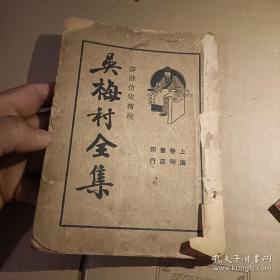 評註仿宋精校
吳梅村全集
上海
春明
書店
印行
孔夫子旧书网